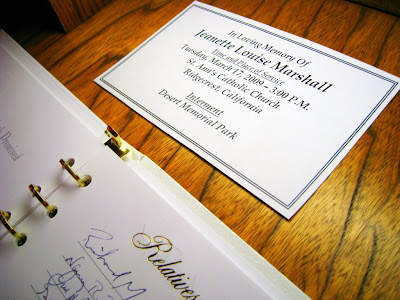 In Loving Memory Of
Jeanette Louise Marshall
Time and Place of Service
Tuesday, March 17, 2009 - 3:00 P.M.
St. Ann's Catholic Church
Ridgecrest, California
Interment
Desert Memorial Park
Promised
Relatives
Richard M